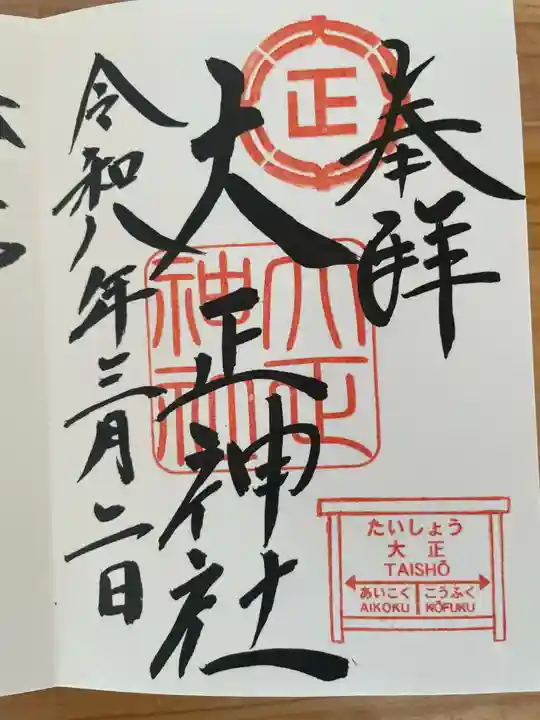 奉拝
正
大正神社
大正神社
令和八年三月二日
たいしょう
大正
TAISHŌ
あいこく こうふく
AIKOKU KŌFUKU